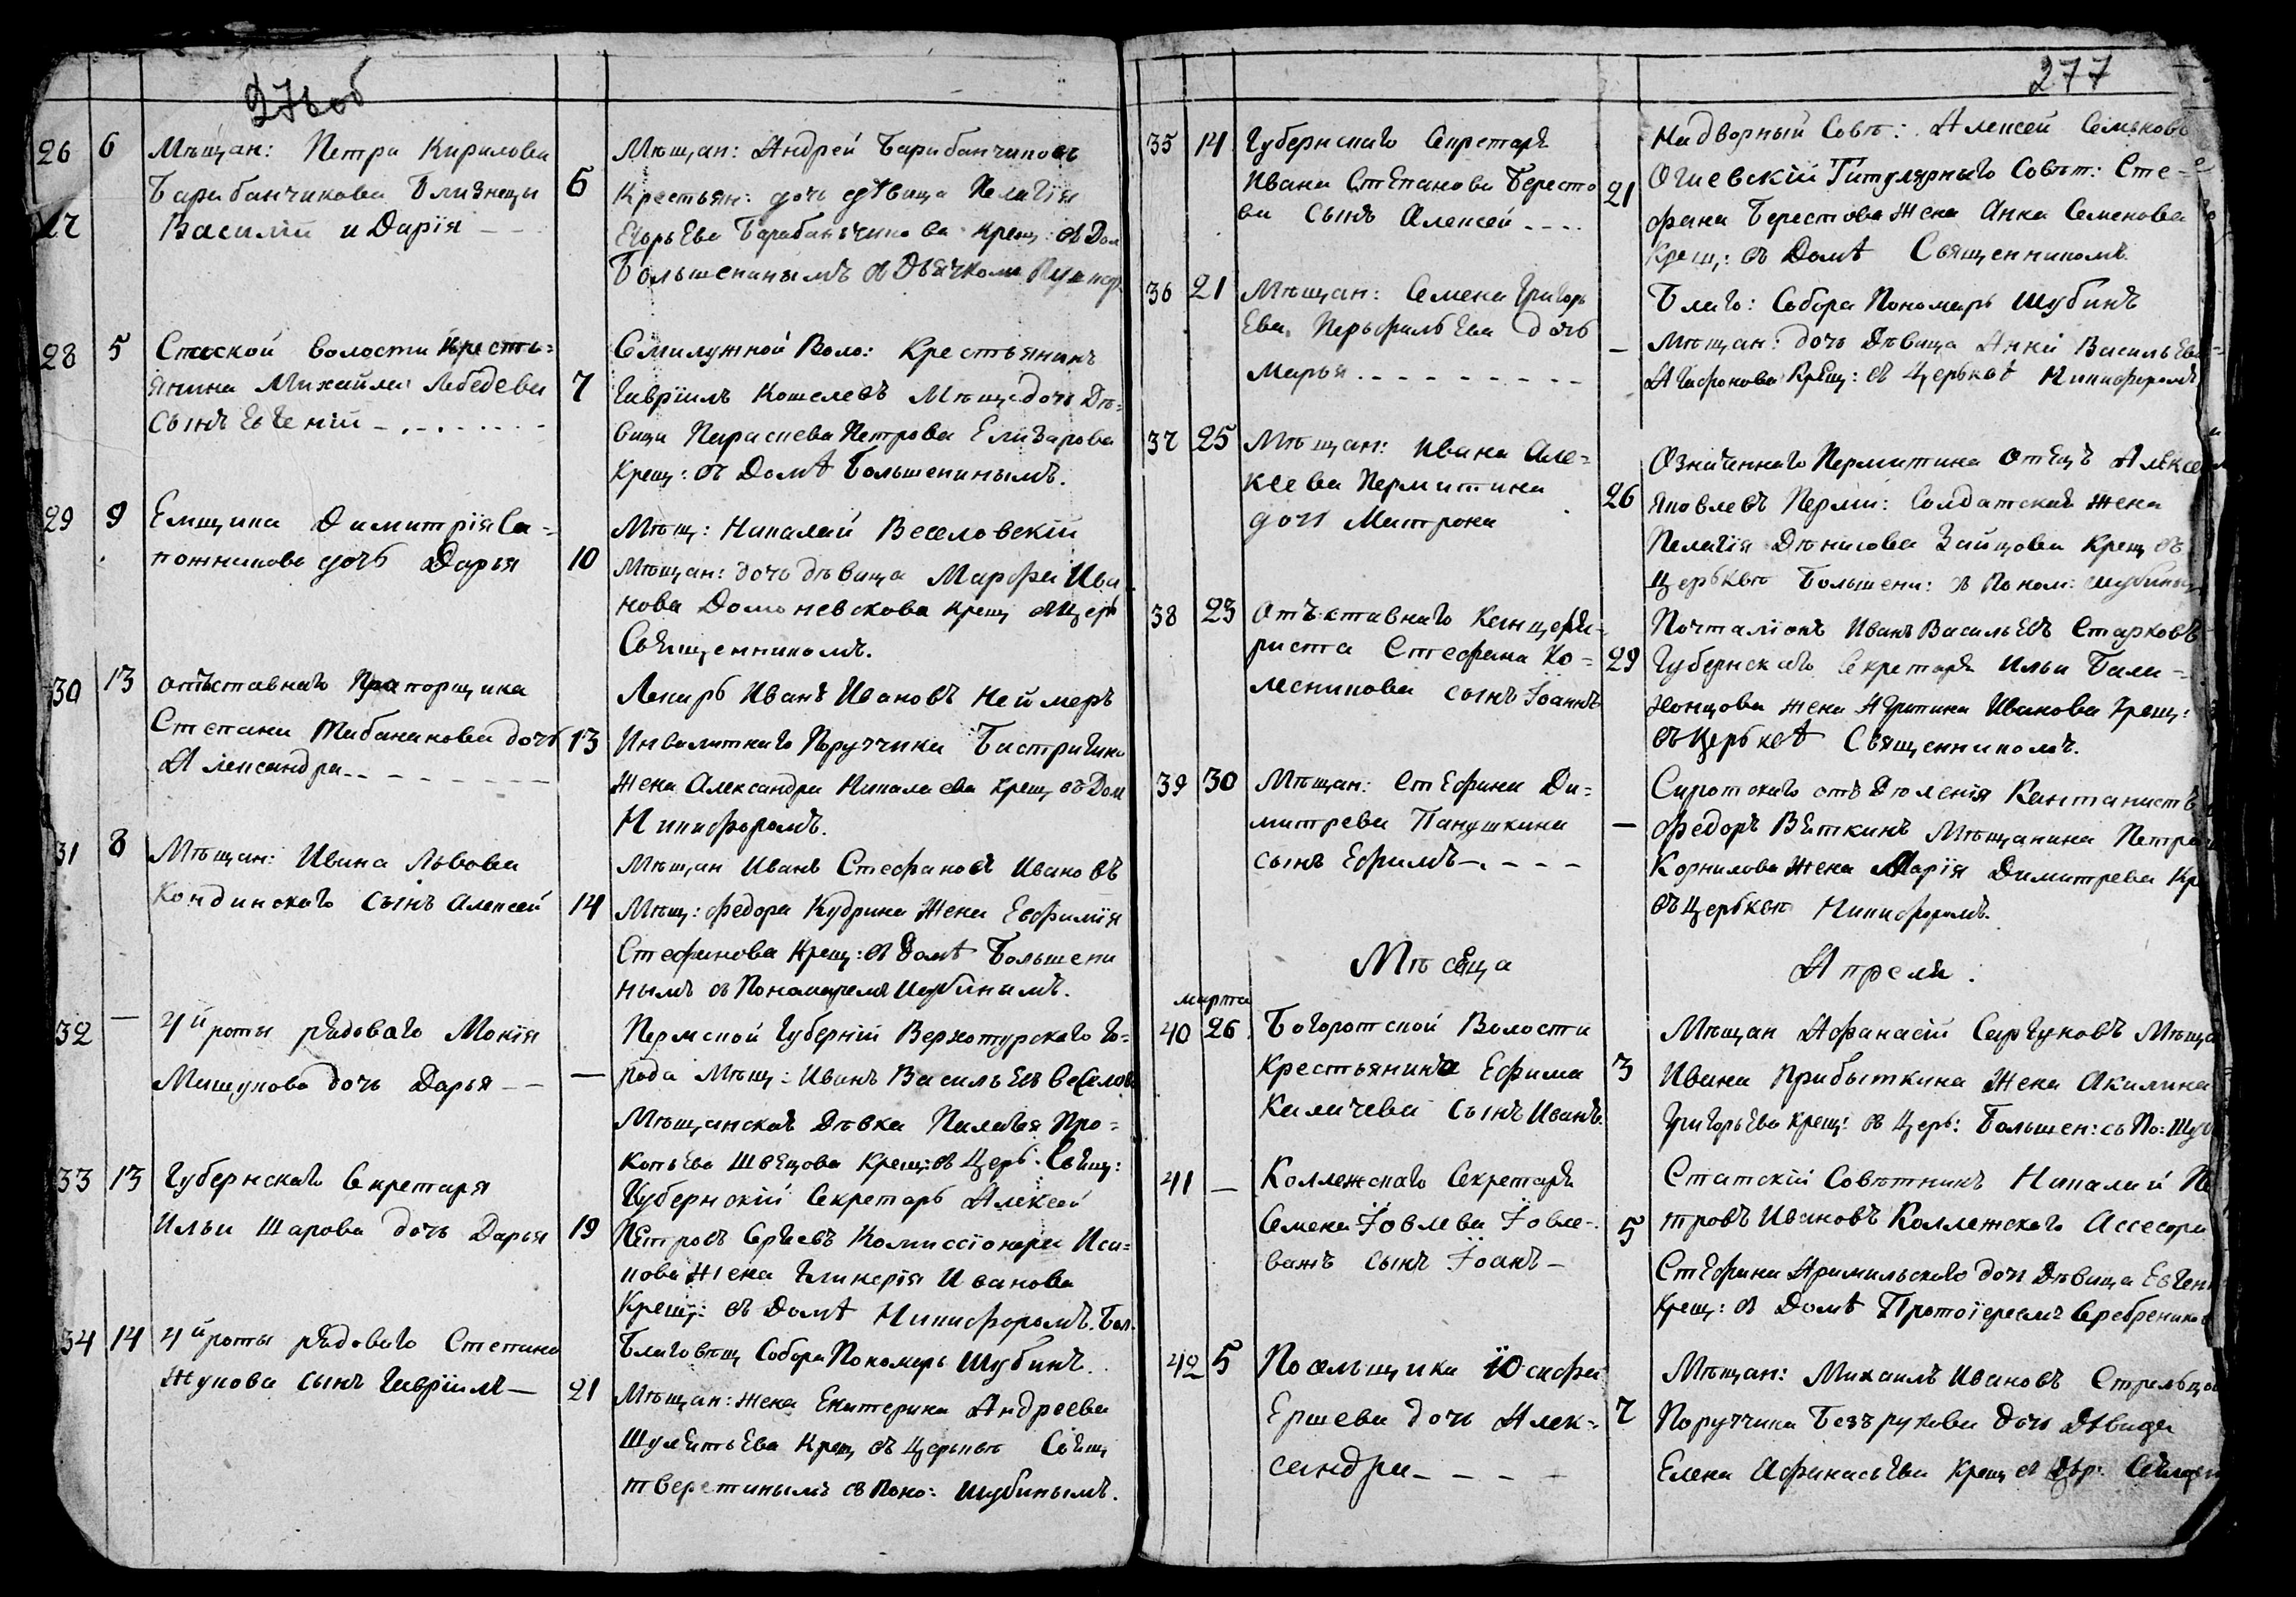 276 об
26 6 Мѣщан: Петра Кирилова
Барабанчикова Близнецы
27 Василій и Дарія - -
6
Мѣщан: Андрей Барабанчиковъ
Крестьян: дочь дѣвица Пелагія
Егорьева Барабаньчикова крещ: въ Дом
Большенинымъ с Дьячкомъ
28 5 Спаской волости Кресть=
янина Михайла Лебедева
сынъ Евгеній - . - . . . . . -
7
Семилужной Воло: Крестьянинъ
Гавріилъ Кошелевъ Мѣщ: дочь Дѣ=
вица Параскева Петрова Елизарова
Крещ: въ Домѣ Большенинымъ.
29 9 Емщика Димитрія Са=
пожникова дочь Дарья
10
Мѣщ: Николай Веселовскій
Мѣщан: дочь дѣвица Марфа Ива
нова Домоневскова крещ въ Цер
Священникомъ.
30 13 отъставнаго Прапорщика
Степана Табанакова дочь
Александра - . - - - - - -
13
Лекарь Иванъ Ивановъ Неймеръ
Инвалитнаго Поручика Бастрыгина
жена Александра Николаева крещ въ Дом
Никифоромъ.
31 8 Мѣщан: Ивана Львова
Кондинскаго сынъ Алексей
14
Мѣщан Иванъ Стефановъ Ивановъ
Мѣщ: Федора Кудрина Жена Евфимія
Стефанова Крещ: въ Домѣ Большени
нымъ съ Пономаремъ Шубинымъ.
32 — 4й роты рядоваго Мокія
Мишукова дочь Дарья - -
—
Пермской Губерній Верхотурскаго Го=
рода Мѣщ: Иванъ Васильевъ Веселов
Мѣщанская Дѣвка Палагея Про=
копьева Швецова Крещ: въ Церь. Свящ:
33 13 Губернскаго Секретаря
Ильи Шарова дочь Дарья
19
Губернскій Секретарь Алексей
Петровъ Сергѣевъ Комиссіонера Иса=
кова жена Гликерія Иванова
Крещ: въ Домѣ Никифоромъ. Бол.
34 14 4й роты рядоваго Степана
Жукова сынъ Гавріилъ —
21
Благовѣщ Собора Пономарь Шубинъ.
Мѣщан: жена Екатерина Андреева
Шулятьева Крещ въ Церькве Свящ
тверетинымъ съ Поно: Шубинымъ.
277
35 14 Губернскаго Секретаря
Ивана Степанова Бересто
ва сынъ Алексей - - - .
21
Надворный Совѣ: Алексей Семенов
Огиевскій Титулярнаго Совѣт: Сте=
фана Берестова жена Анна Семенова
Крещ: въ Домѣ Священникомъ.
36 21 Мѣщан: Семена Григорь
Ева Перьфильева дочь
Марья . - - - - - - - -
—
Благо: Собора Пономарь Шубинъ
Мѣщан: дочь Дѣвица Анна Васильева
Агафонова Крещ: въ Церькве Никифоромъ
37 25 Мѣщан: Ивана Але=
ксеева Пермитина
дочь Матрона
26
Означеннаго Пермитина отецъ Алексей
Яковлевъ Перми: Солдатская жена
Пелагія Дѣнисова Зайцова Крещ въ
Церькве Большени: с Поном: Шубиным
38 23 Отъставнаго Канцеля-
риста Стефана Ко=
лесникова сынъ Іоаннъ
29
Почталіонъ Иванъ Васильевъ Старковъ
Губернскаго Секретаря Ильи Бала=
жонцова жена Агрипина Иванова Крещ:
въ Церькве Священникомъ.
39 30 Мѣщан: Стефана Ди=
митрева Панушкина
сынъ Ефимъ - . - - -
—
Сиротскаго отъ Дѣленія Кантонистъ
Федоръ Вяткинъ Мѣщанина Петра
Корнилова жена Марія Димитрева Кр
въ Церькве Никифоромъ.
Мѣсяца Апреля.
марта
40 26 Богоротской Волости
Крестьянина Ефима
Калачева сынъ Иванъ.
3
Мѣщан Афанасій Сапгуковъ Мѣща
Ивана Прибыткина Жена Акилина
Григорьева крещ: въ Церь: Большен: съ По: Шуб
41 — Коллежскаго Секретаря
Семена Іовлева Іовле-
ва сынъ Іоанъ —
5
Статскій Совѣтникъ Николай Пе
тровъ Ивановъ Коллежскаго Ассесора
Стефана Арамильскаго дочь Дѣвица Евген
Крещ: въ Домѣ Протоіереемъ Серебренико
42 5 Посельщика Юсифа
Ершева дочь Алек=
сандра - - - -
7
Мѣщан: Михаилъ Ивановъ Стрельцо
Поручика Безрукова дочь Дѣвица
Елена Афанасьева Крещ въ Цер: Священ